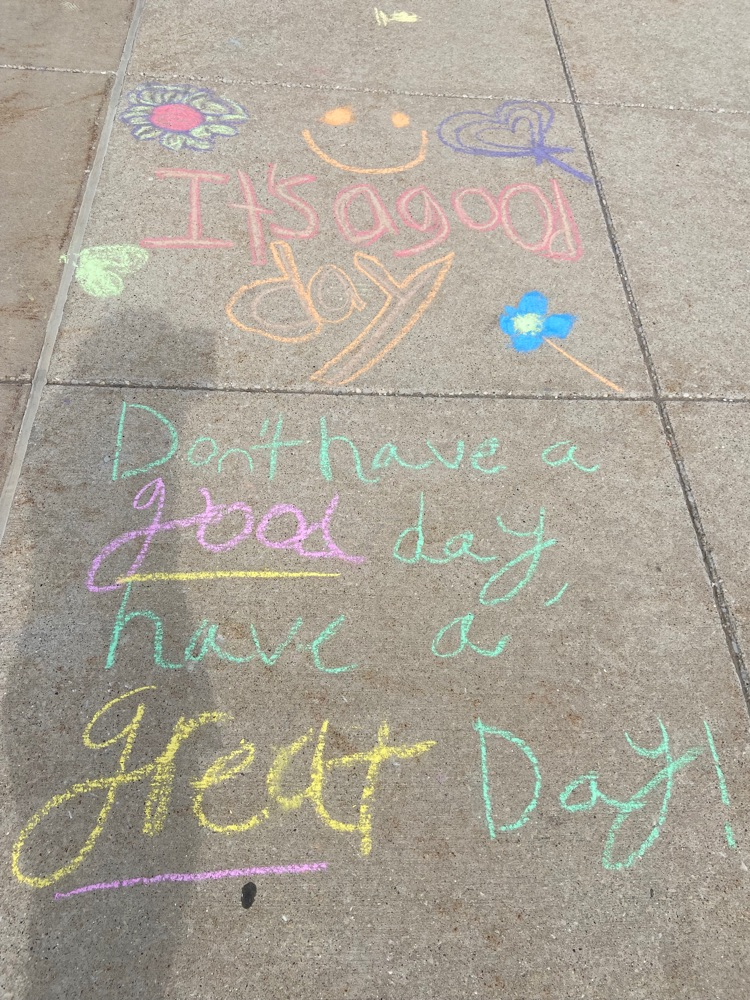 It's a good
day
Don't have a
good day,
have a
great Day!